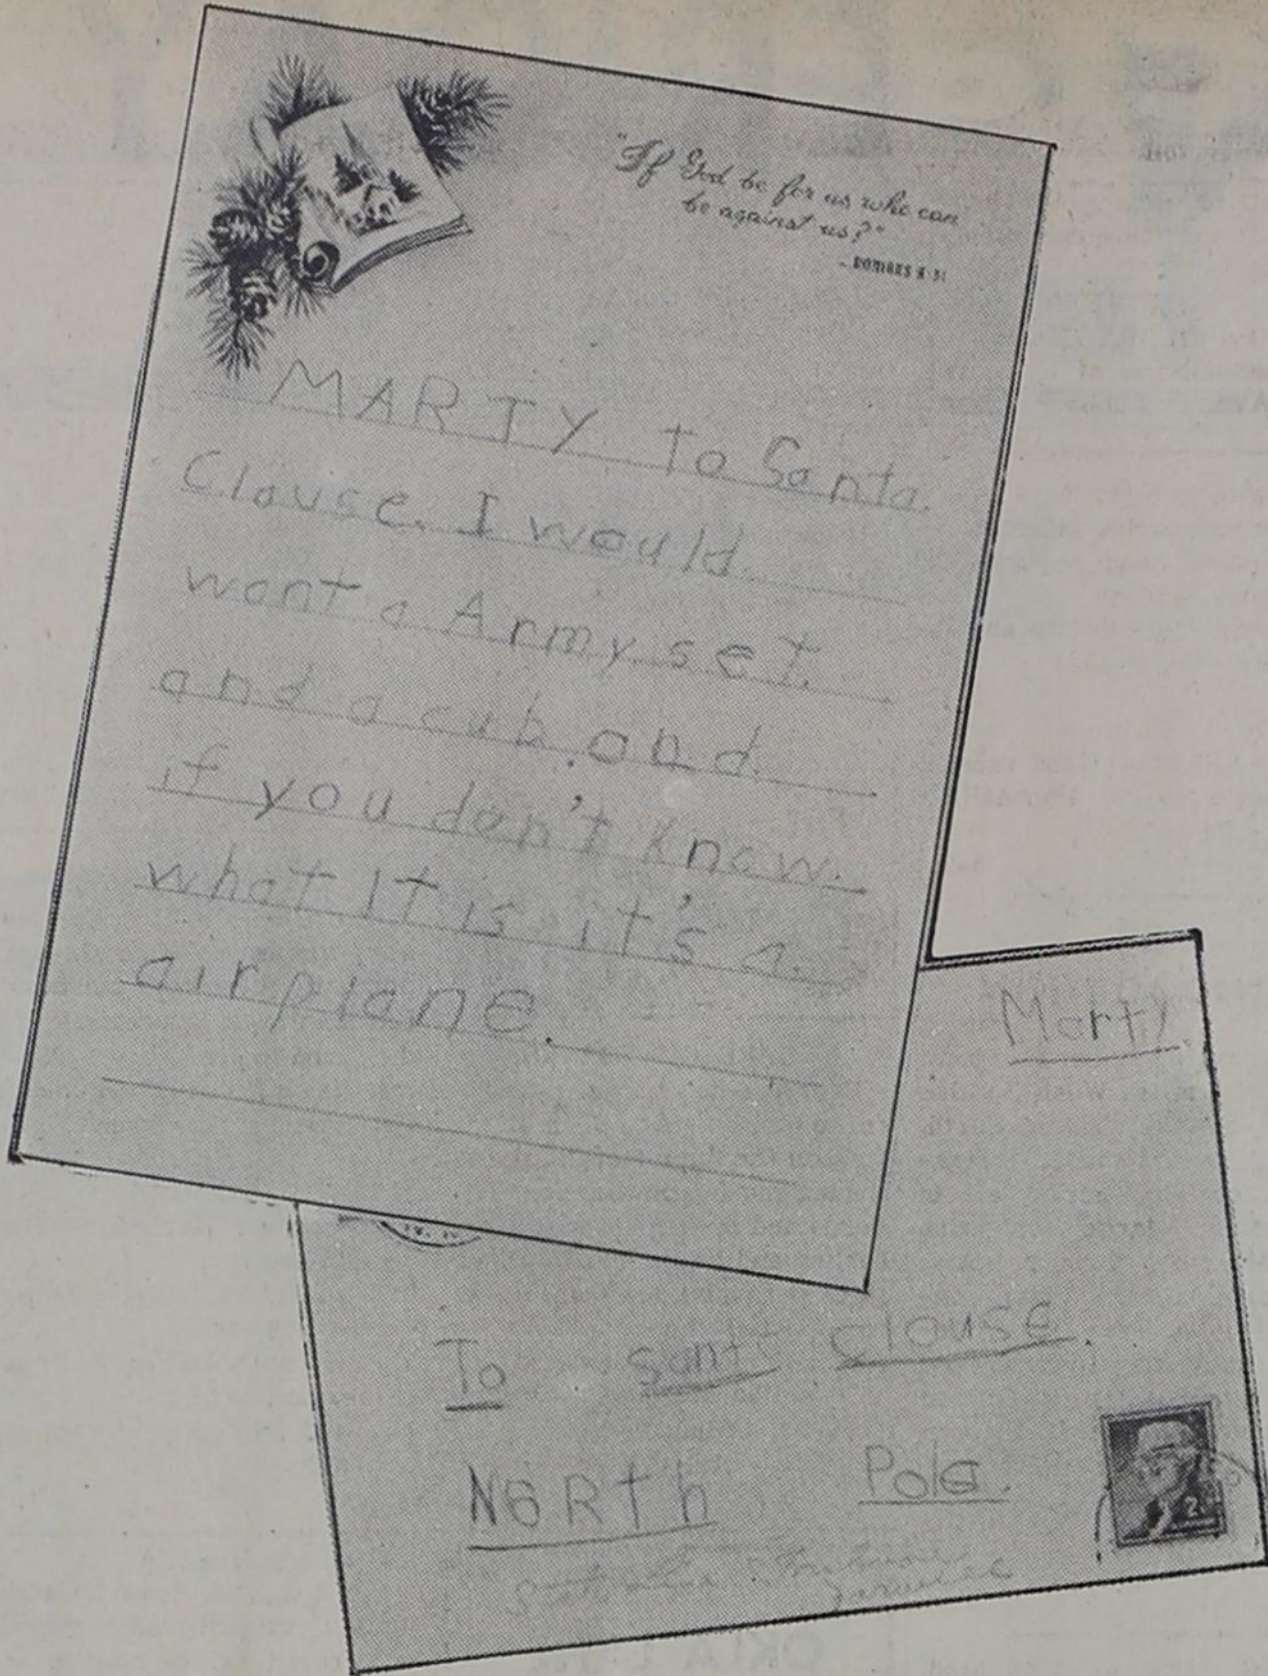 "If God be for us who can
be against us?"
ROMANS 8:31
MARTY To Santa
Clause. I would
want a Army set.
and a cub and
if you don't know.
what It is it's a
airplane.
Marty
To Sant Clause.
NORTh Pole.
2